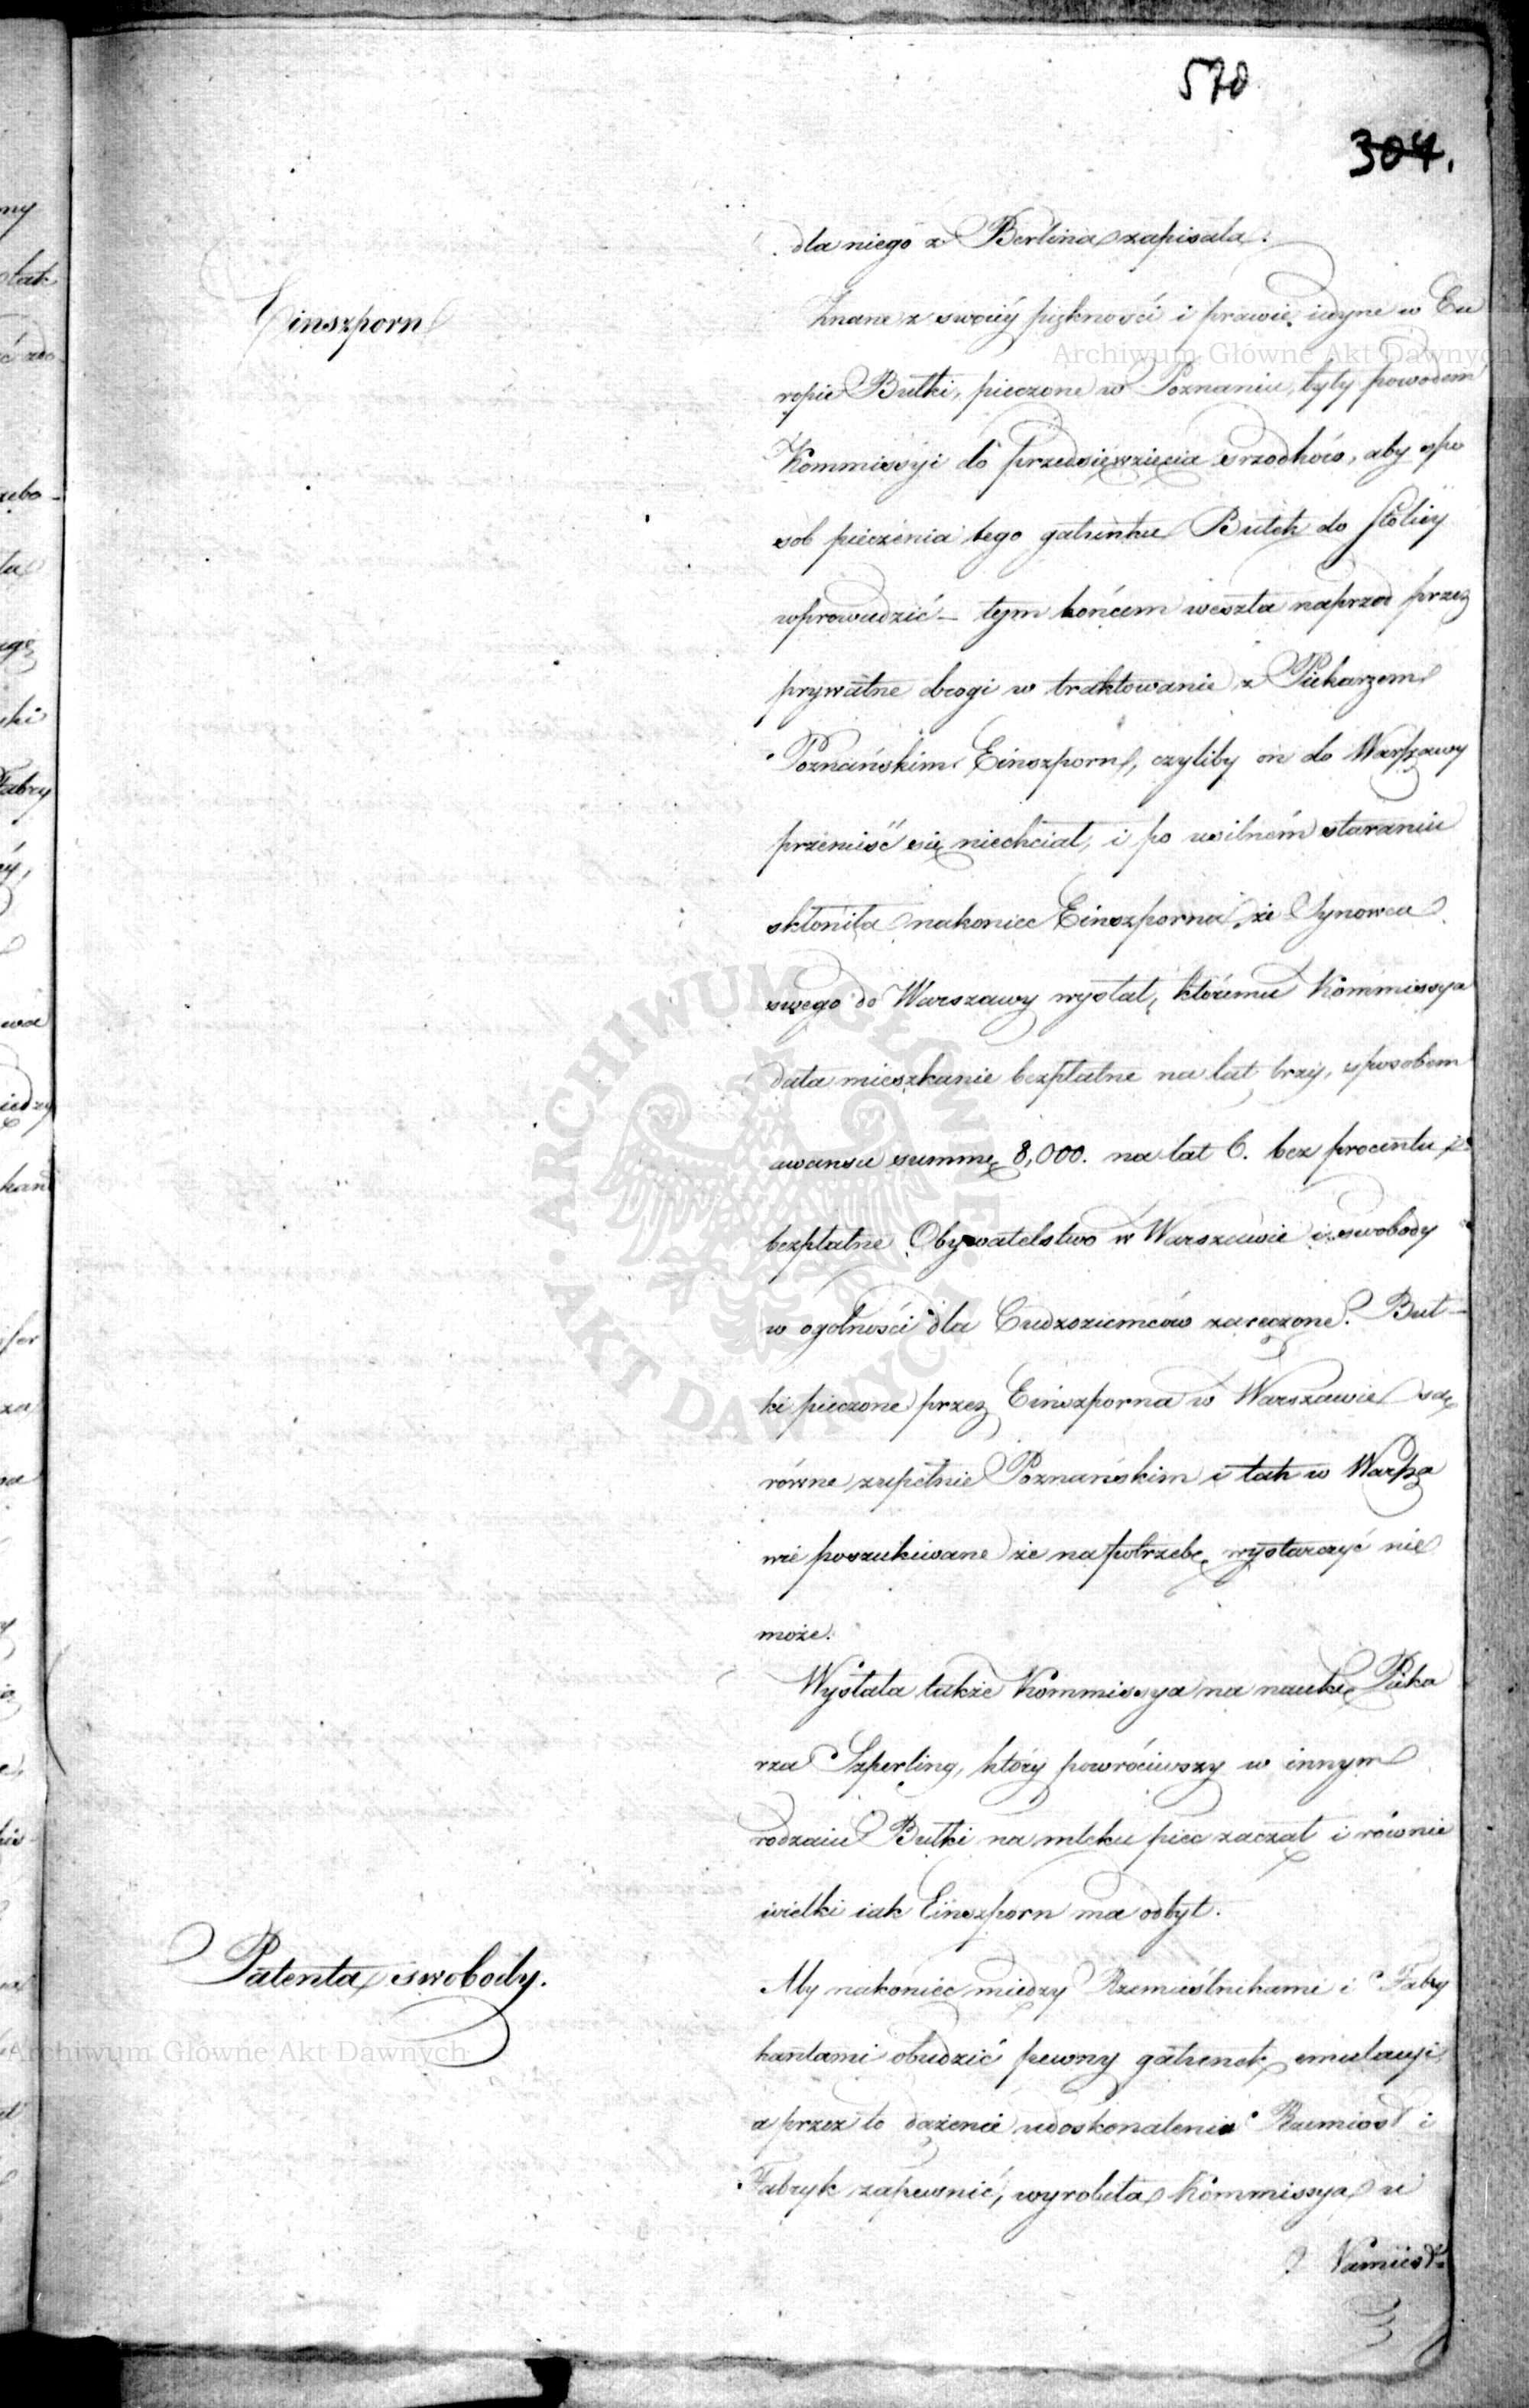 570
304.
dla niego z Berlina zapisała.
Einszporn
Znane z swoiéy piękności i prawie iedyne w Eu
ropie Bułki, pieczone w Poznaniu, były powodem
Kommissyi do przedsięwzięcia srzodków, aby spo
sob pieczenia tego gatunku Bułek do Stolicy
wprowadzić – tym końcem weszła naprzod przez
prywatne drogi w traktowanie z Piekarzem
Poznańskim Einszporn, czyliby on do Warszawy
przenieść się niechciał, i po usilném staraniu
skłoniła nakoniec Einszporna, że Synowca
swego do Warszawy wysłał, któremu Kommissya
dała mieszkanie bezpłatne na lat trzy, sposobem
awansu summę 8,000. na lat 6. bez procentu i
bezpłatne Obywatelstwo w Warszawie i swobody
w ogolności dla Cudzoziemców zaręczone. Buł-
ki pieczone przez Einszporna w Warszawie są
równe zupełnie Poznańskim i tak w Warsza
wie poszukiwane że na potrzebę wystarczyć nie
może.
Wysłała także Kommissya na naukę Pieka
rza Szperling, który powróciwszy w innym
rodzaiu Bułki na mleku piec zaczął i równie
wielki iak Einszporn ma odbyt.
Patenta swobody.
Aby nakoniec między Rzemieślnikami i Fabry
kantami obudzić pewny gatunek emulacyi
a przez to dążenie udoskonalenia Rzemiosł i
Fabryk zapewnić, wyrobiła Kommissya u
Namiest-
Archiwum Główne Akt Dawnych
ARCHIWUM GŁÓWNE · AKT DAWNYCH ·
Archiwum Główne Akt Dawnych